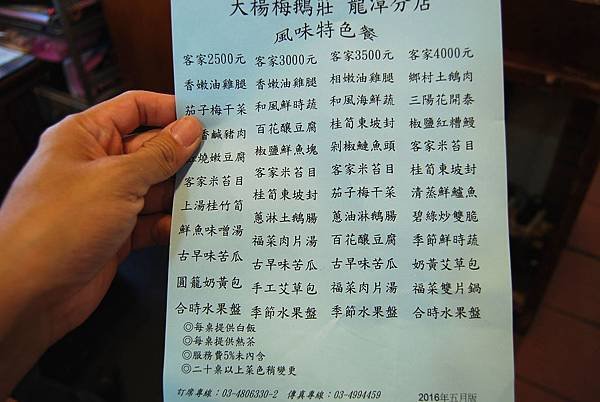 大楊梅鵝莊 龍潭分店
風味特色餐
客家2500元 客家3000元 客家3500元 客家4000元
香嫩油雞腿 香嫩油雞腿 相嫩油雞腿 鄉村土鵝肉
茄子梅干菜 和風鮮時蔬 和風海鮮蔬 三陽花開泰
香鹹豬肉 百花釀豆腐 桂筍東坡封 椒鹽紅糟鰻
燒嫩豆腐 椒鹽鮮魚塊 剁椒鰱魚頭 客家米苔目
客家米苔目 客家米苔目 客家米苔目 桂筍東坡封
上湯桂竹筍 桂筍東坡封 茄子梅干菜 清蒸鮮鱸魚
鮮魚味噌湯 蔥淋土鵝腸 蔥油淋鵝腸 碧綠炒雙脆
古早味苦瓜 福菜肉片湯 百花釀豆腐 季節鮮時蔬
圓籠奶黃包 古早味苦瓜 古早味苦瓜 奶黃艾草包
合時水果盤 手工艾草包 福菜肉片湯 福菜雙片鍋
季節水果盤 季節水果盤 合時水果盤
◎每桌提供白飯
◎每桌提供熱茶
◎服務費5%未內含
◎二十桌以上菜色稍變更
訂席專線：03-4806330-2 傳真專線：03-4994459
2016年五月版